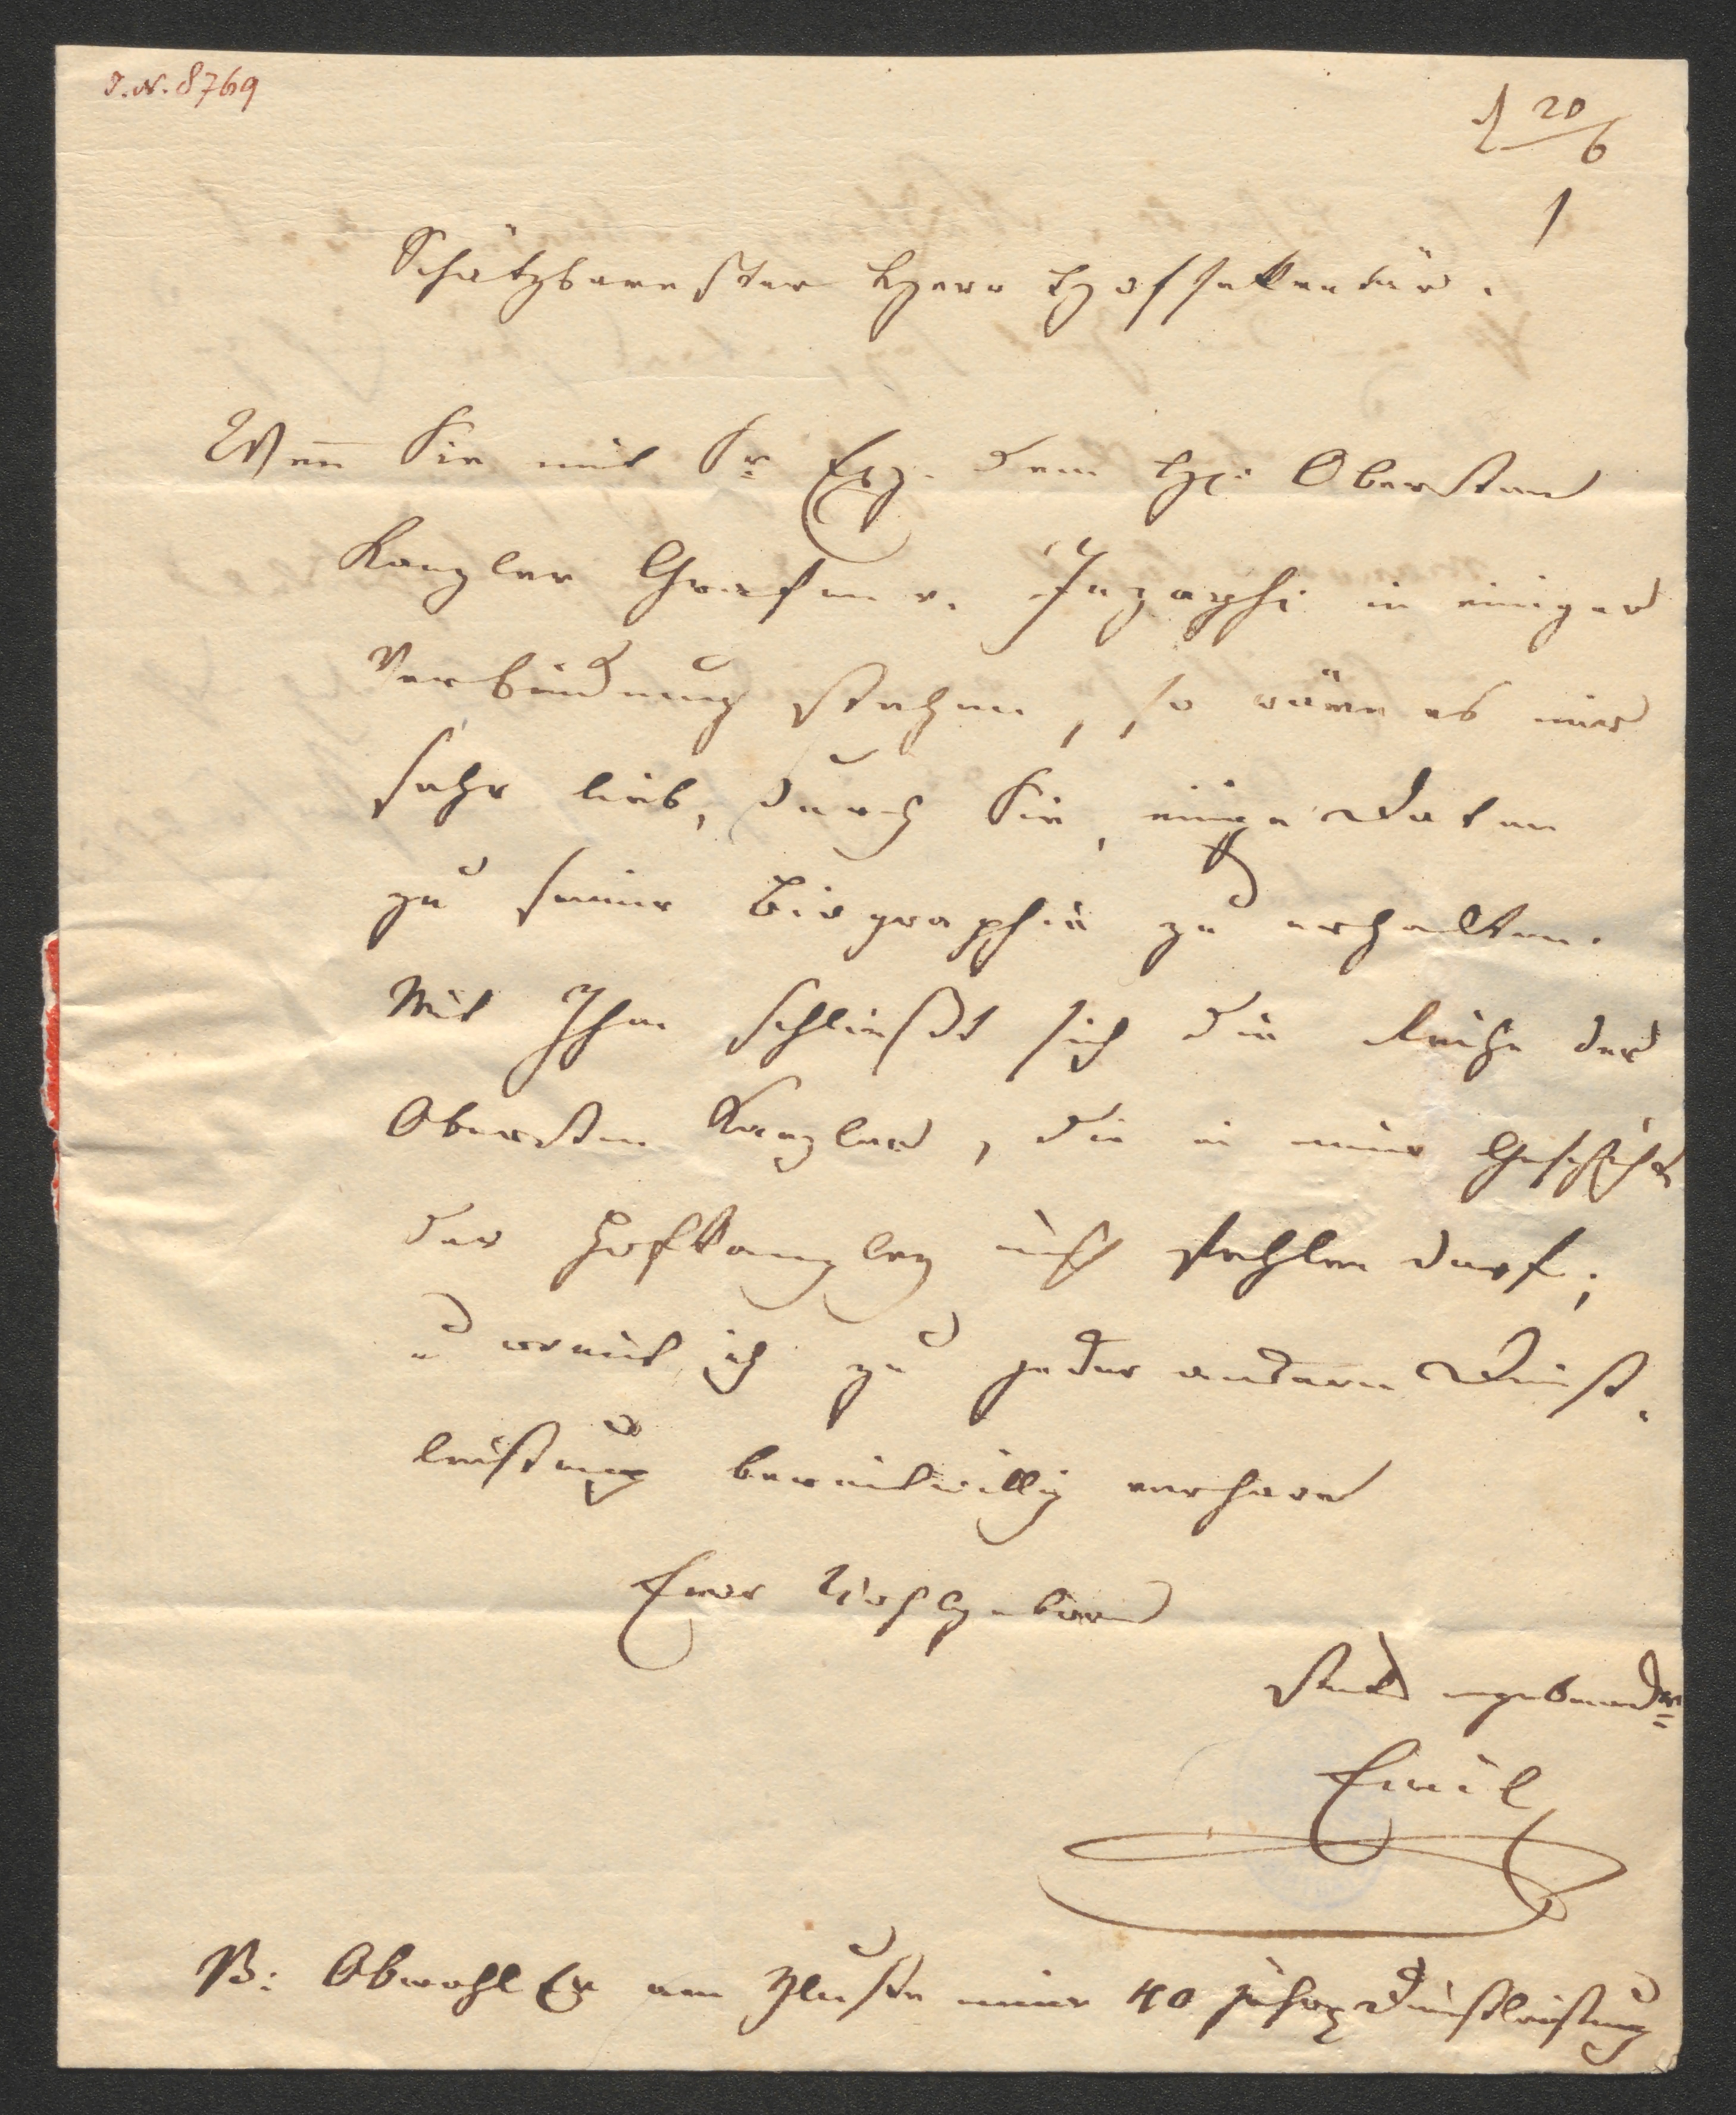 I.N. 8769
20
6
1
Schätzbarester Herr Hofsekretär.
Wen̄ Sie mit Sr Exz. dem H: Obersten
Kanzler Grafen v. Inzaghi in einiger
Verbindung stehen, so wäre es mir
sehr lieb, durch Sie, einige Daten
zu seiner Biographie zu erhalten.
Mit Ihm schließt sich die Reihe der
Obersten Kanzler, die in einer Geschichte
der Hofkanzley nicht fehlen darf;
womit ich zu jeder andern Dienst
leistung bereitwillig verharre
Euer Wohlgeboren
stets ergebenster
Emil
NB: Obwohl Er am Schluße einer 40 jährig Dienstleistung